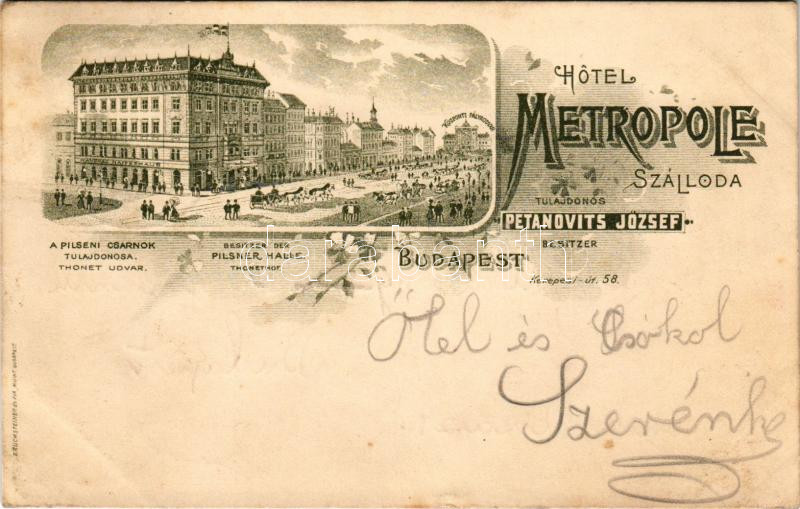 HÔTEL
METROPOLE
SZÁLLODA
TULAJDONOS
PETANOVITS JÓZSEF
BESITZER
BUDAPEST
Kerepesi-út. 58.
KÖZPONTI PÁLYAUDVAR
A PILSENI CSARNOK
TULAJDONOSA.
THONET UDVAR.
BESITZER DER
PILSNER HALLE.
THONETHOF.
Ölel és Csókol
Szerénke
darabanth.com